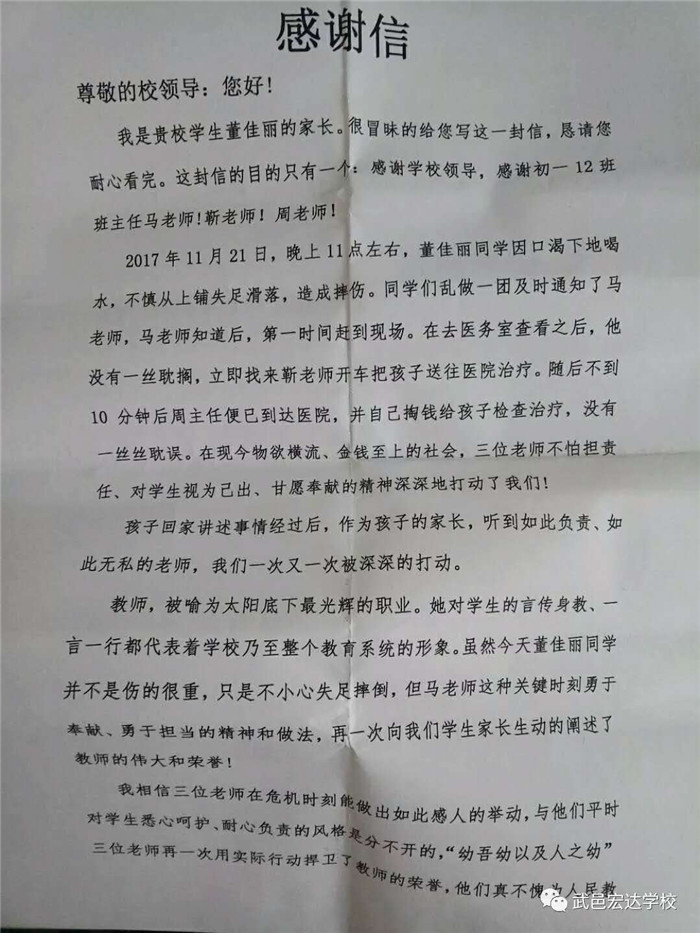 感谢信
尊敬的校领导：您好！
我是贵校学生董佳丽的家长。很冒昧的给您写这一封信，恳请您
耐心看完。这封信的目的只有一个：感谢学校领导，感谢初一 12 班
班主任马老师！靳老师！周老师！
2017 年 11 月 21 日，晚上 11 点左右，董佳丽同学因口渴下地喝
水，不慎从上铺失足滑落，造成摔伤。同学们乱做一团及时通知了马
老师，马老师知道后，第一时间赶到现场。在去医务室查看之后，他
没有一丝耽搁，立即找来靳老师开车把孩子送往医院治疗。随后不到
10 分钟后周主任便已到达医院，并自己掏钱给孩子检查治疗，没有
一丝丝耽误。在现今物欲横流、金钱至上的社会，三位老师不怕担责
任、对学生视为己出、甘愿奉献的精神深深地打动了我们！
孩子回家讲述事情经过后，作为孩子的家长，听到如此负责、如
此无私的老师，我们一次又一次被深深的打动。
教师，被喻为太阳底下最光辉的职业。她对学生的言传身教、一
言一行都代表着学校乃至整个教育系统的形象。虽然今天董佳丽同学
并不是伤的很重，只是不小心失足摔倒，但马老师这种关键时刻勇于
奉献、勇于担当的精神和做法，再一次向我们学生家长生动的阐述了
教师的伟大和荣誉！
我相信三位老师在危机时刻能做出如此感人的举动，与他们平时
对学生悉心呵护、耐心负责的风格是分不开的，“幼吾幼以及人之幼”
三位老师再一次用实际行动捍卫了教师的荣誉，他们真不愧为人民教
武邑宏达学校